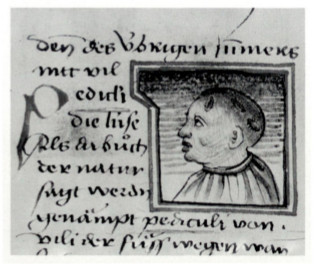 den des Vbrigen Jnners
mit vil
Pediculi
die lüse
Als das bůch
der natur
sagt werdn
genampt pediculi von
vili der füss wegen wan